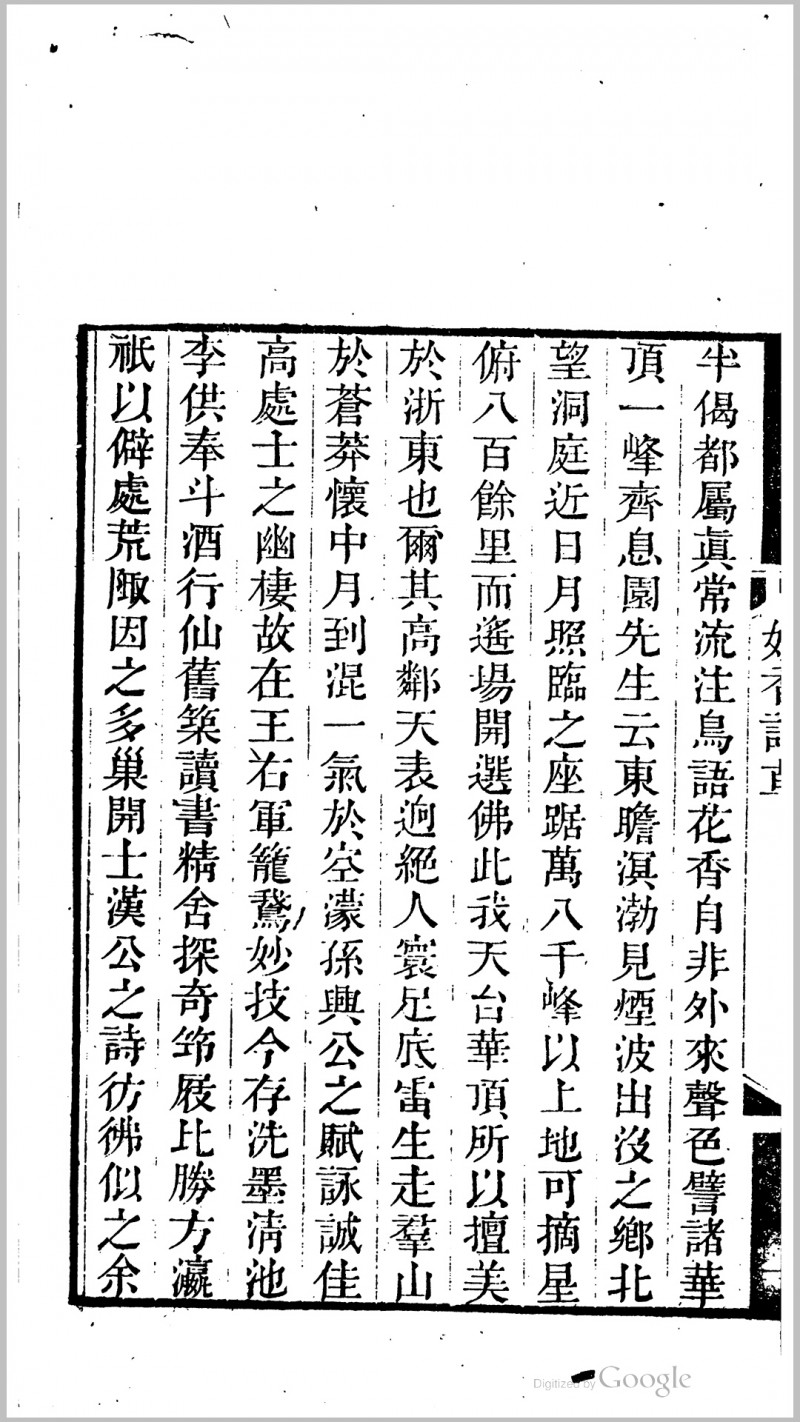 半偈都屬眞常流注鳥語花香自非外來聲色譬諸華
頂一峰齊息園先生云東瞻溟渤見煙波出沒之鄉北
望洞庭近日月照臨之座踞萬八千峰以上地可摘星
俯八百餘里而遙場開選佛此我天台華頂所以擅美
於浙東也爾其高鄰天表逈絕人寰足底雷生走羣山
於蒼莽懷中月到混一氣於空濛孫興公之賦詠誠佳
高處士之幽棲故在王右軍籠鵞妙技今存洗墨淸池
李供奉斗酒行仙舊築讀書精舍探奇笻屐比勝方瀛
祇以僻處荒陬因之多巢開士漢公之詩彷彿似之余
Digitized by Google